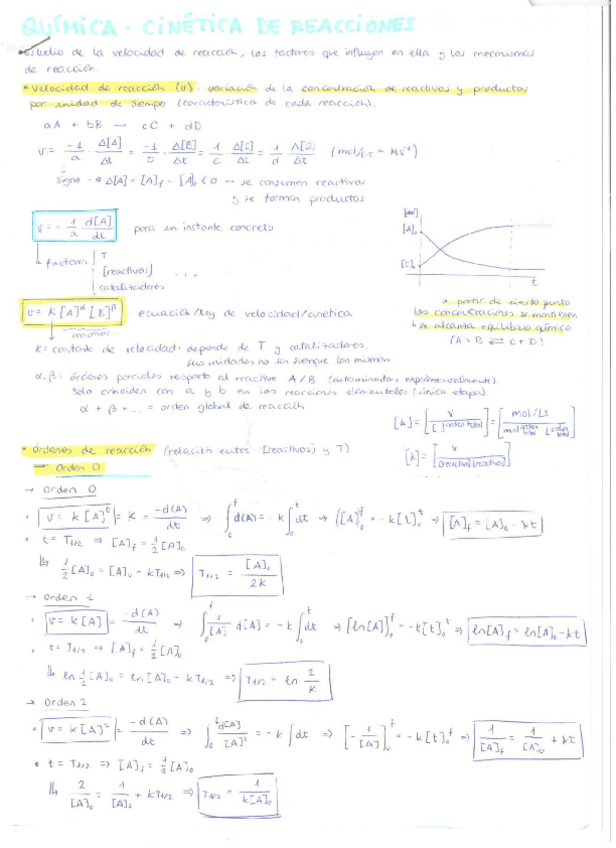 QUÍMICA · CINÉTICA DE REACCIONES
• Estudio de la velocidad de reacción, los factores que influyen en ella y los mecanismos
de reacción.
• Velocidad de reacción (v): variación de la concentración de reactivos y productos
por unidad de tiempo (característica de cada reacción).
aA + bB → cC + dD
v = -1/a · Δ[A]/Δt = -1/b · Δ[B]/Δt = 1/c · Δ[C]/Δt = 1/d · Δ[D]/Δt (mol/L·s = Ms⁻¹)
signo - → Δ[A] = [A]f - [A]₀ < 0 → se consumen reactivos
y se forman productos
v = - 1/a · d[A]/dt para un instante concreto
factores
T
[reactivos]
catalizadores
...
[A]₀
[C]₀
t
a partir de cierto punto
las concentraciones se mantienen
↳ se alcanza equilibrio químico
(A + B ⇄ C + D)
v = k [A]^α [B]^β ecuación/ley de velocidad/cinética
reactivos
k: constante de velocidad: depende de T y catalizadores.
sus unidades no son siempre las mismas.
α, β: órdenes parciales respecto al reactivo A / B (determinados experimentalmente).
Solo coinciden con a y b en las reacciones elementales (única etapa).
α + β + ... = orden global de reacción
[k] = [v / [ ]^orden total] = [mol/Ls / mol^orden total L^orden total]
[k] = [v / [reactivo][reactivo]]
• Órdenes de reacción (relación entre [reactivos] y T)
→ Orden 0
→ Orden 0
• v = k [A]⁰ = K = -d(A)/dt ⇒ ∫₀^f d(A) = -k ∫₀^t dt → ([A])₀^f = -k [t]₀^t ⇒ [A]f = [A]₀ - kt
• t = T1/2 ⇒ [A]f = 1/2 [A]₀
↳ 1/2 [A]₀ = [A]₀ - kT1/2 ⇒ T1/2 = [A]₀/2k
→ Orden 1
• v = k [A] = -d(A)/dt ⇒ ∫₀^f 1/[A] d[A] = -k ∫₀^t dt ⇒ [ln[A]]₀^f = -k[t]₀^t ⇒ ln[A]f = ln[A]₀ - kt
• t = T1/2 ⇒ [A]f = 1/2 [A]₀
↳ ln 1/2 [A]₀ = ln [A]₀ - kT1/2 ⇒ T1/2 = ln 2/K
→ Orden 2
• v = k [A]² = -d(A)/dt ⇒ ∫₀^f d[A]/[A]² = -k ∫dt ⇒ [-1/[A]]₀^f = -k [t]₀^t ⇒ 1/[A]f = 1/[A]₀ + kt
• t = T1/2 ⇒ [A]f = 1/2 [A]₀
↳ 2/[A]₀ = 1/[A]₀ + kT1/2 ⇒ T1/2 = 1/k[A]₀